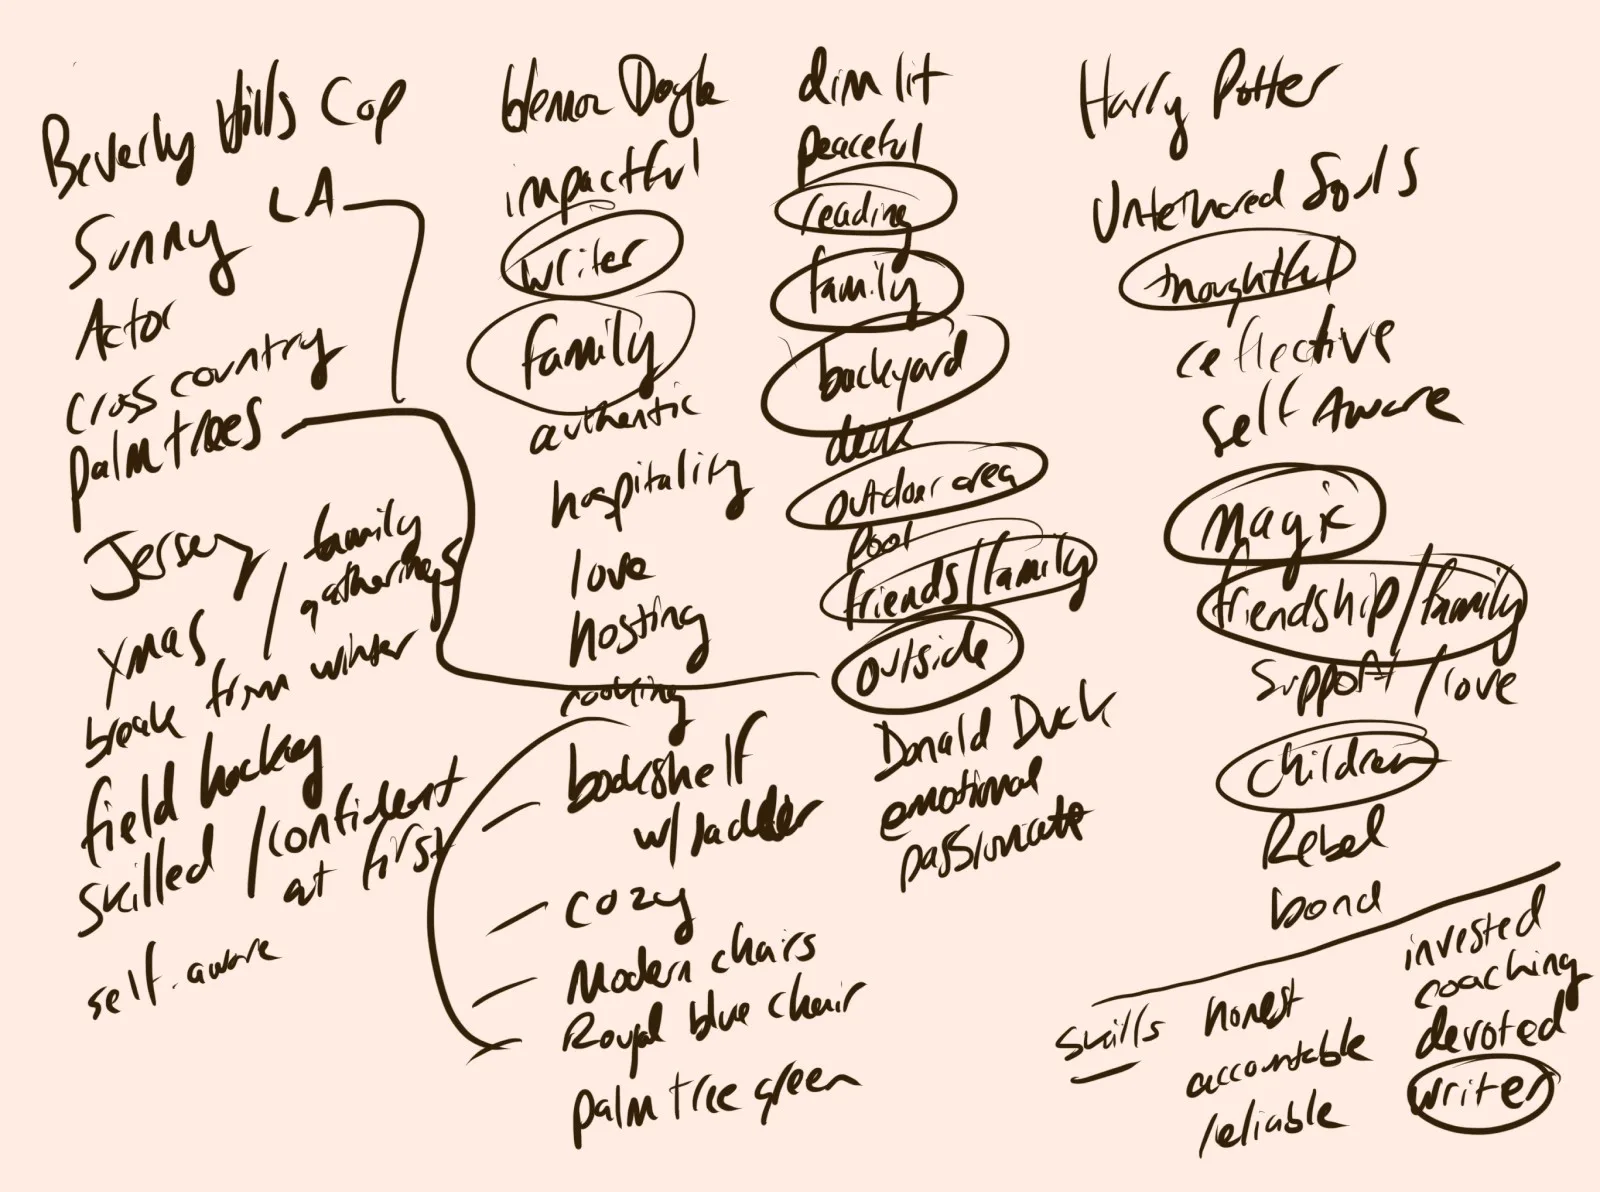 Beverly Hills Cop
Sunny LA
Actor
cross country
palm trees
Jersey
xmas / family gatherings
break from winter
field hockey
skilled / confident
at first
self-aware
Doyle
impactful
writer
family
authentic
hospitality
love
hosting
cooking
bookshelf
w/ ladder
cozy
Modern chairs
Royal blue chair
palm tree green
dim lit
peaceful
reading
family
backyard
deck
outdoor area
pool
friends/family
outside
Donald Duck
emotional
passionate
Harry Potter
Untethered Souls
thoughtful
reflective
self Aware
magic
friendship/family
support/love
children
Rebel
bond
skills
honest
accountable
reliable
invested
coaching
devoted
writer